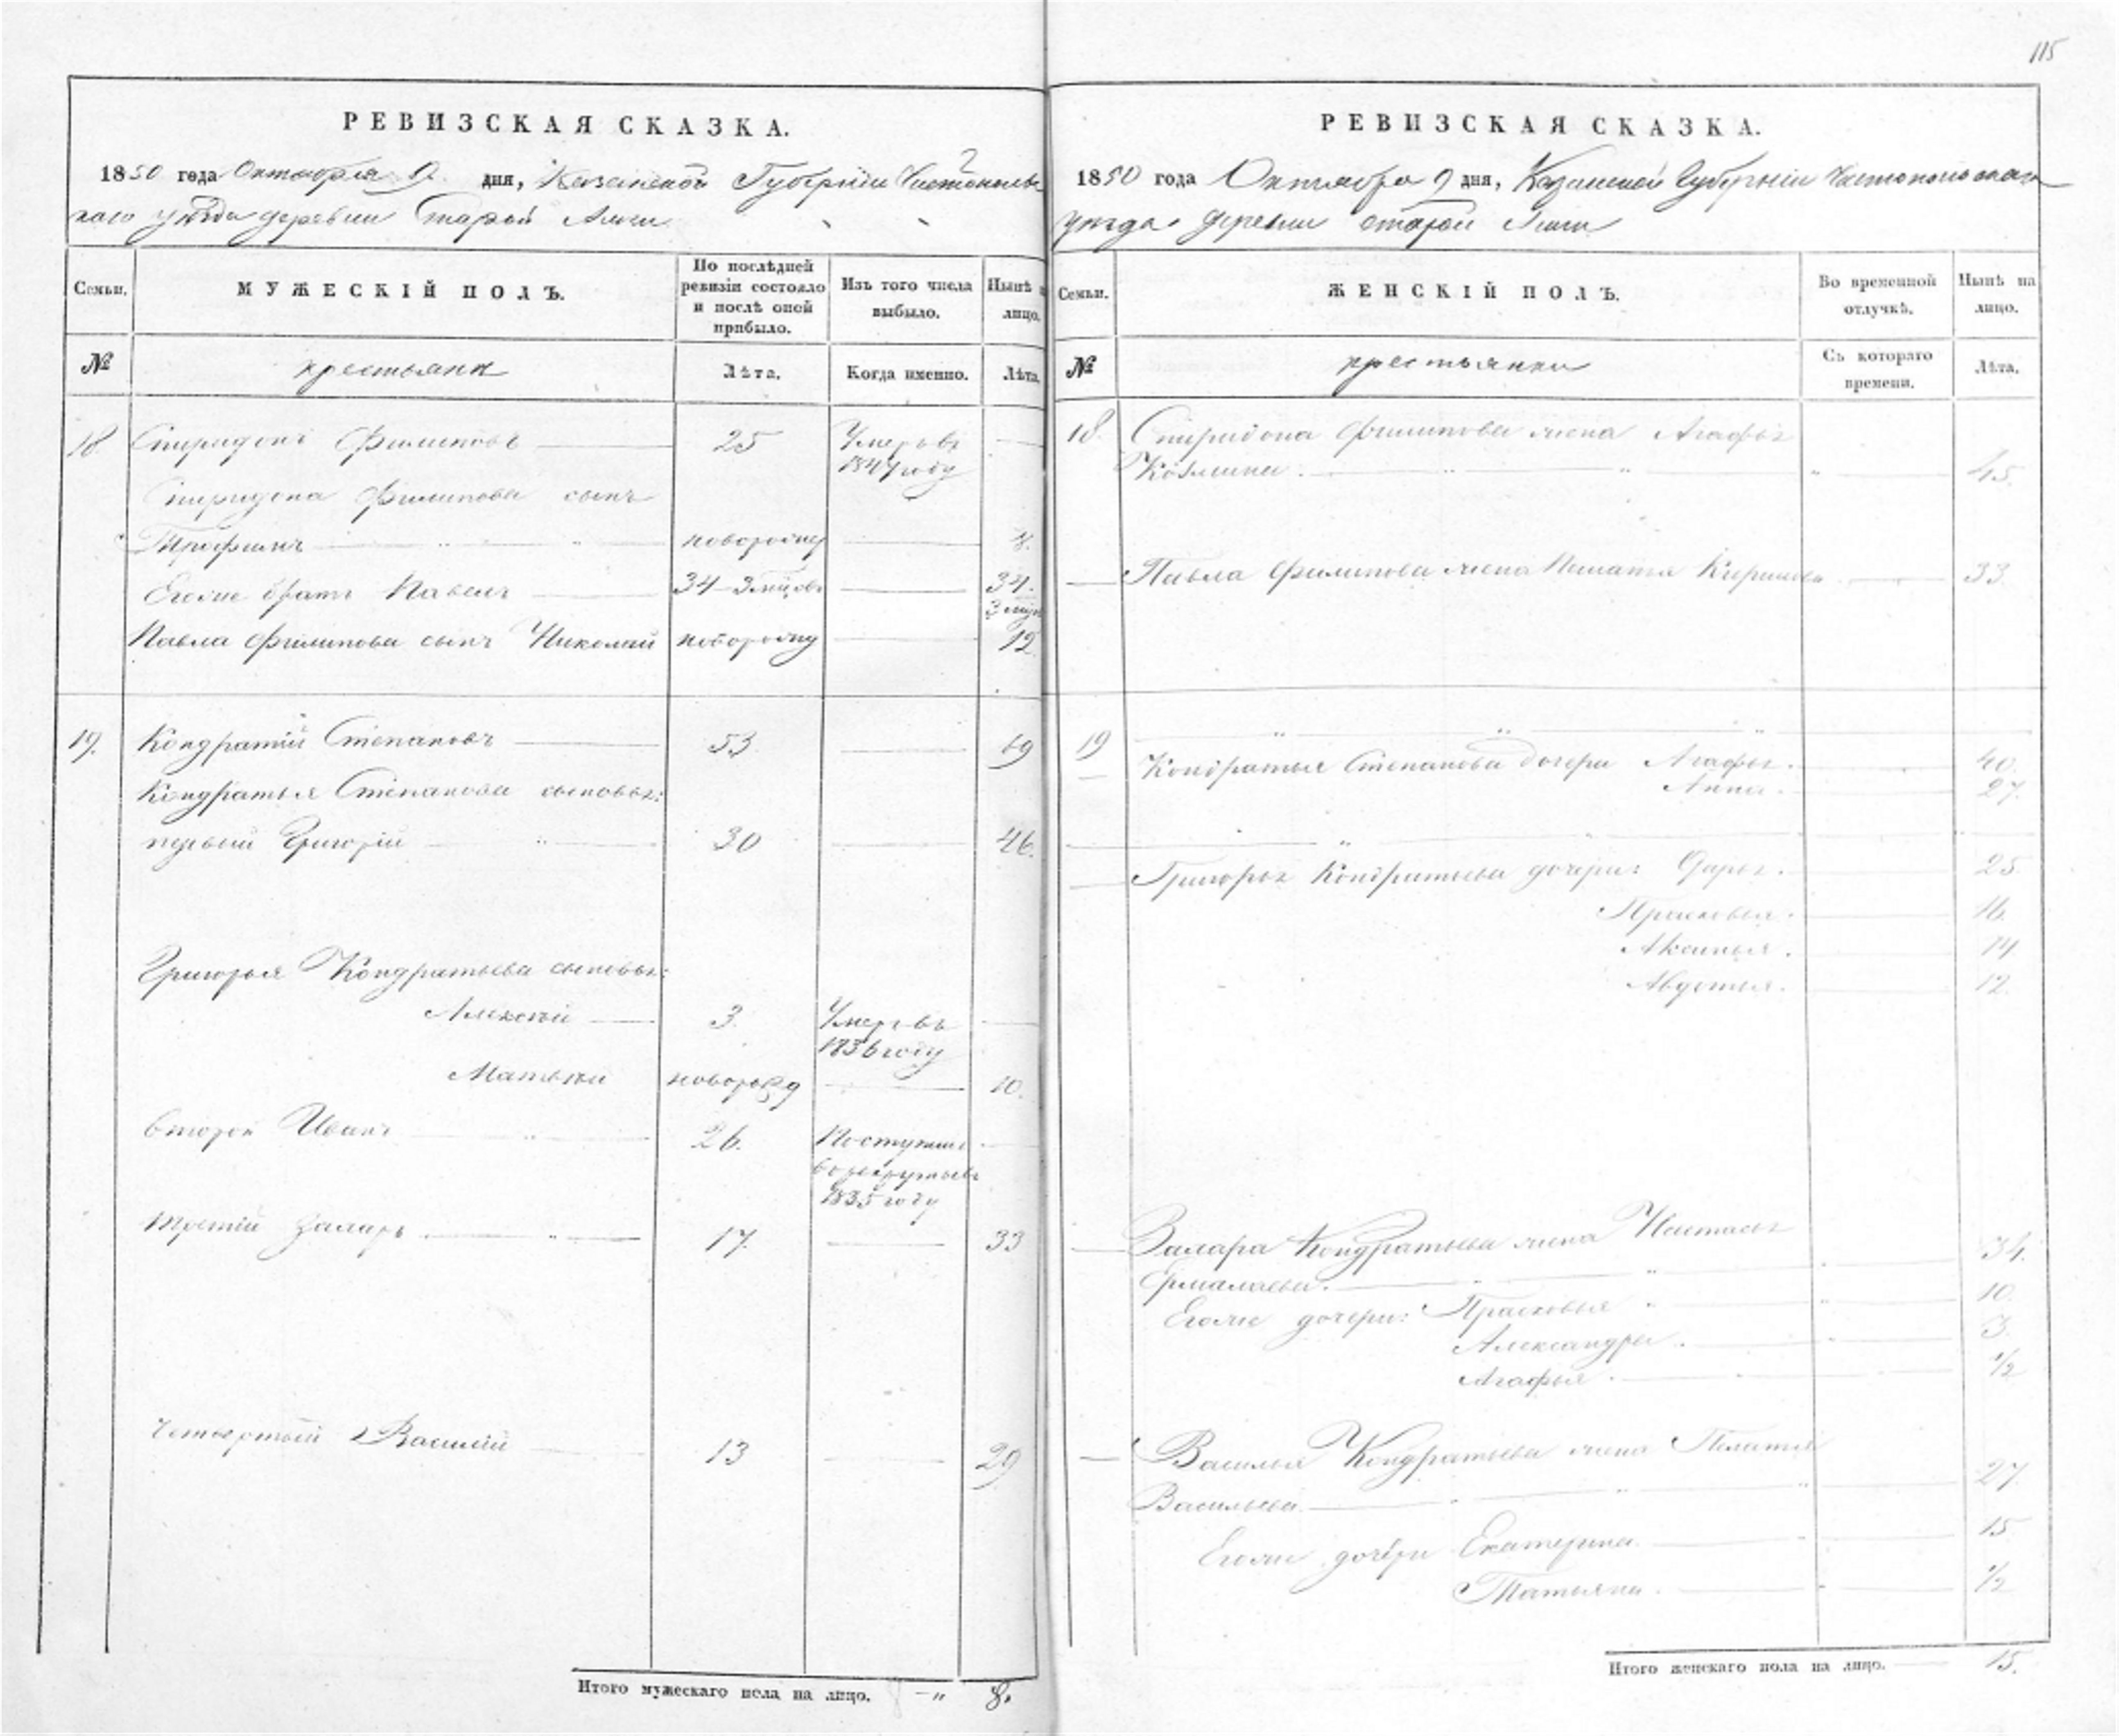 115
РЕВИЗСКАЯ СКАЗКА.
1850 года Октября 9 дня, Казанской Губерніи Чистополь
скаго уѣзда деревни Старой
Семьи.
МУЖЕСКІЙ ПОЛЪ.
По послѣдней ревизіи состояло и послѣ оной прибыло.
Изъ того числа выбыло.
Нынѣ лицо.
№
крестьяне
Лѣта.
Когда именно.
Лѣта.
18. Спиридонъ Филиповъ 25 Умеръ въ
1847 году
Спиридона Филипова сынъ
Трофимъ новорожд 8.
Егоже братъ Павелъ 34 34.
Павла Филипова сынъ Николай новорожд 12
19. Кондратій Степановъ 53 69
Кондратья Степанова сыновья:
первый Григорій 30 46.
Григорья Кондратьева сыновья:
Алексѣй 3. Умеръ въ
1836 году
Матвѣй новорожд 10.
второй Иванъ 26. Поступилъ
в рекруты въ
1835 году
третій 17. 33
четвертый Василій 13 29
Итого мужескаго пола на лицо. 8.
РЕВИЗСКАЯ СКАЗКА.
1850 года Октября 9 дня, Казанской Губерніи Чистопольскаго
уѣзда деревни старой
Семьи.
ЖЕНСКІЙ ПОЛЪ.
Во временной отлучкѣ.
Нынѣ на лицо.
№
крестьянки
Съ котораго времени.
Лѣта.
18. Спиридона Филипова жена Агафья
Козмина. 45.
Павла Филипова жена 33.
19
Кондратья Степанова дочери Агафья. 40.
Анна. 27.
Григорья Кондратьева дочери: Дарья. 25
Прасковья. 16.
Аксинья. 14
Авдотья. 12.
Кондратьева жена Настасья
34.
Егоже дочери: Прасковья 10.
Александра. 3.
Агафья. 1/2
Василья Кондратьева жена Пелагея
Васильева 27.
Егоже дочери Екатерина 15
Татьяна. 1/2
Итого женскаго пола на лицо. 15.